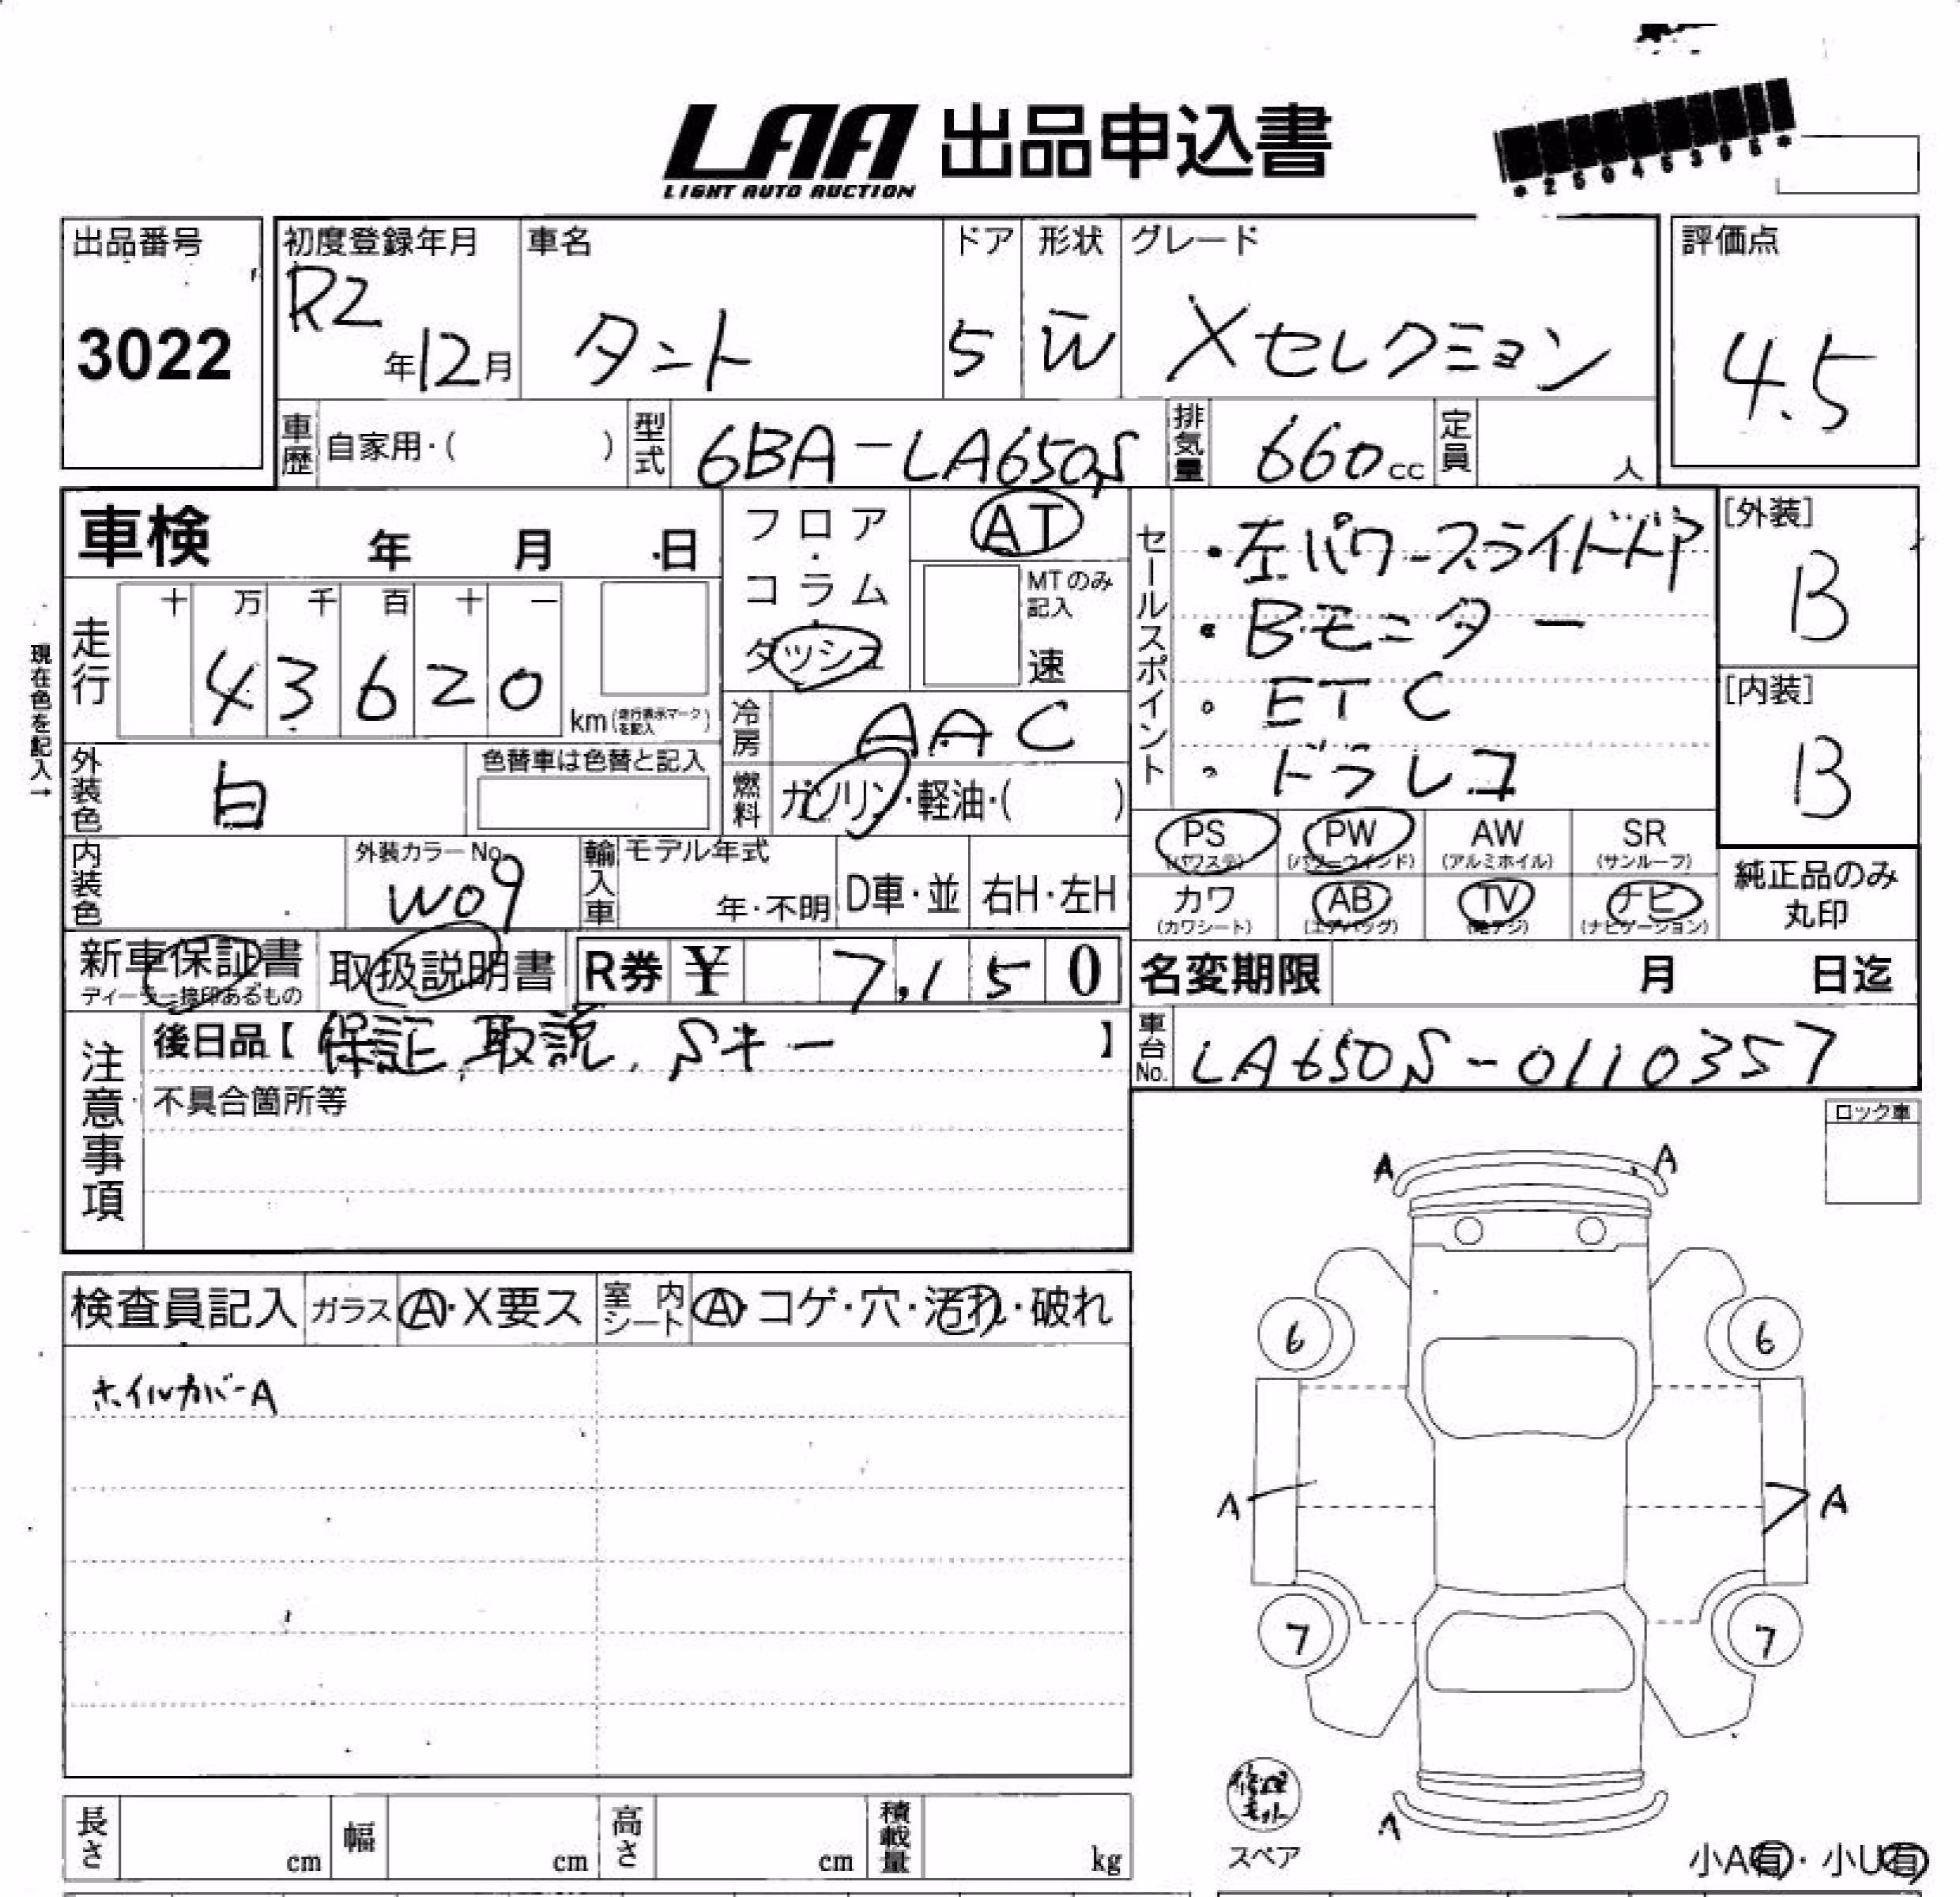 LAA 出品申込書
LIGHT AUTO AUCTION
*25045395*
出品番号
3022
初度登録年月
R2年12月
車名
タント
ドア
5
形状
W
グレード
Xセレクション
評価点
4.5
車歴
自家用・( )
型式
6BA-LA650S
排気量
660cc
定員
人
車検 年 月 日
フロア・コラム・ダッシュ
AT
MTのみ記入
速
現在色を記入→
走行
十 万 千 百 十 一
4 3 6 2 0
km(走行表示マークを記入)
冷房
AAC
燃料
ガソリン・軽油・( )
外装色
白
色替車は色替と記入
内装色
外装カラーNo.
W09
輸入車
モデル年式
年・不明
D車・並
右H・左H
セールスポイント
・左パワースライドドア
・Bモニター
・ETC
・ドラレコ
[外装]
B
[内装]
B
PS (パワステ)
PW (パワーウインド)
AW (アルミホイル)
SR (サンルーフ)
カワ (カワシート)
AB (エアバッグ)
TV (地デジ)
ナビ (ナビゲーション)
純正品のみ
丸印
新車保証書
ディーラー捺印あるもの
取扱説明書
R券 ¥ 7,150
名変期限 月 日迄
注意事項
後日品【 保証、取説、Sキー 】
不具合箇所等
車台No.
LA650S-0110357
ロック車
検査員記入
ガラス
A・X要ス
室内シート
A・コゲ・穴・汚れ・破れ
ホイルカバーA
A A
6 6
A A
7 7
A
修理キット
スペア
小A有・小U有
長さ cm
幅 cm
高さ cm
積載量 kg